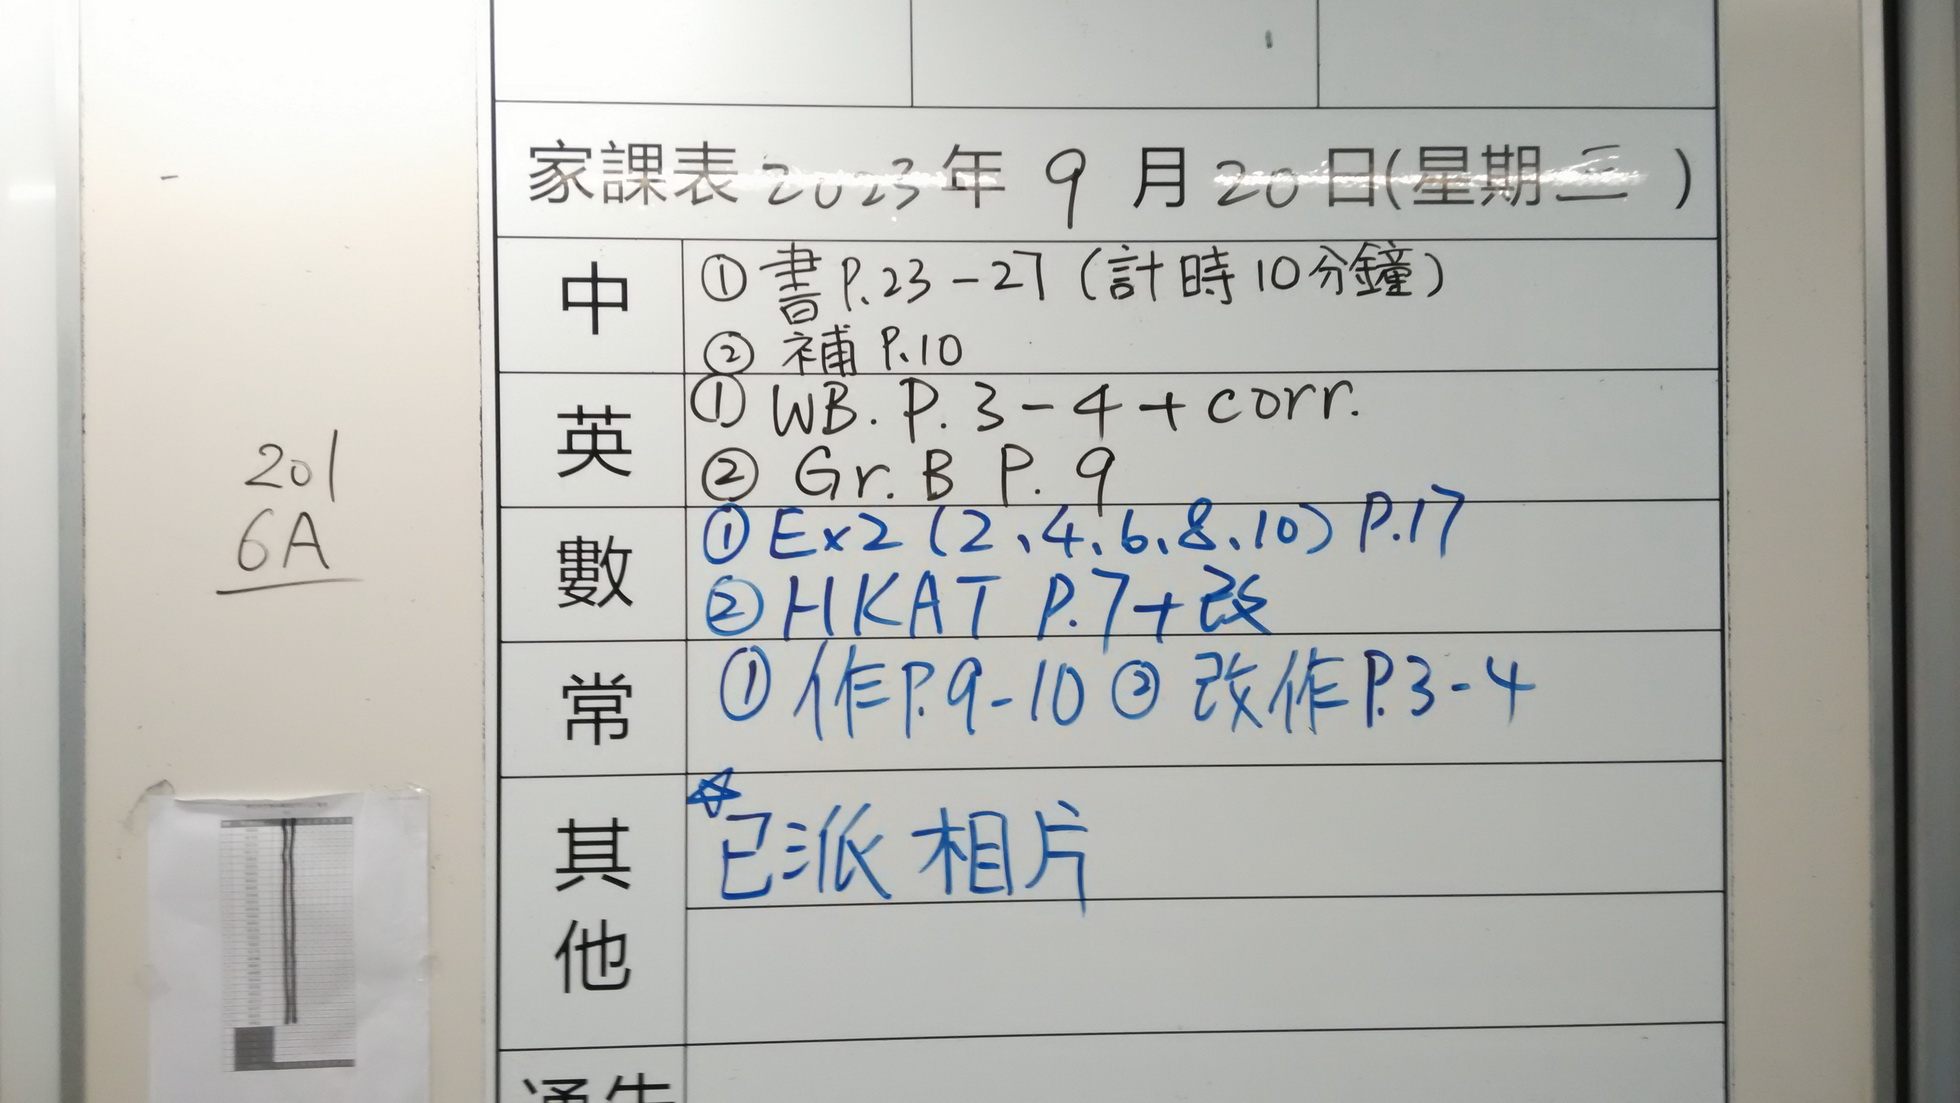 家課表 2023年 9 月 20 日(星期三 )
中
① 書 P.23-27 (計時10分鐘)
② 補 P.10
英
① WB. P. 3-4 + corr.
② Gr. B P. 9
數
① Ex2 (2、4、6、8、10) P.17
② HKAT P.7+改
常
① 作P.9-10 ② 改作P.3-4
其他
☆已派相片
通告
201
6A